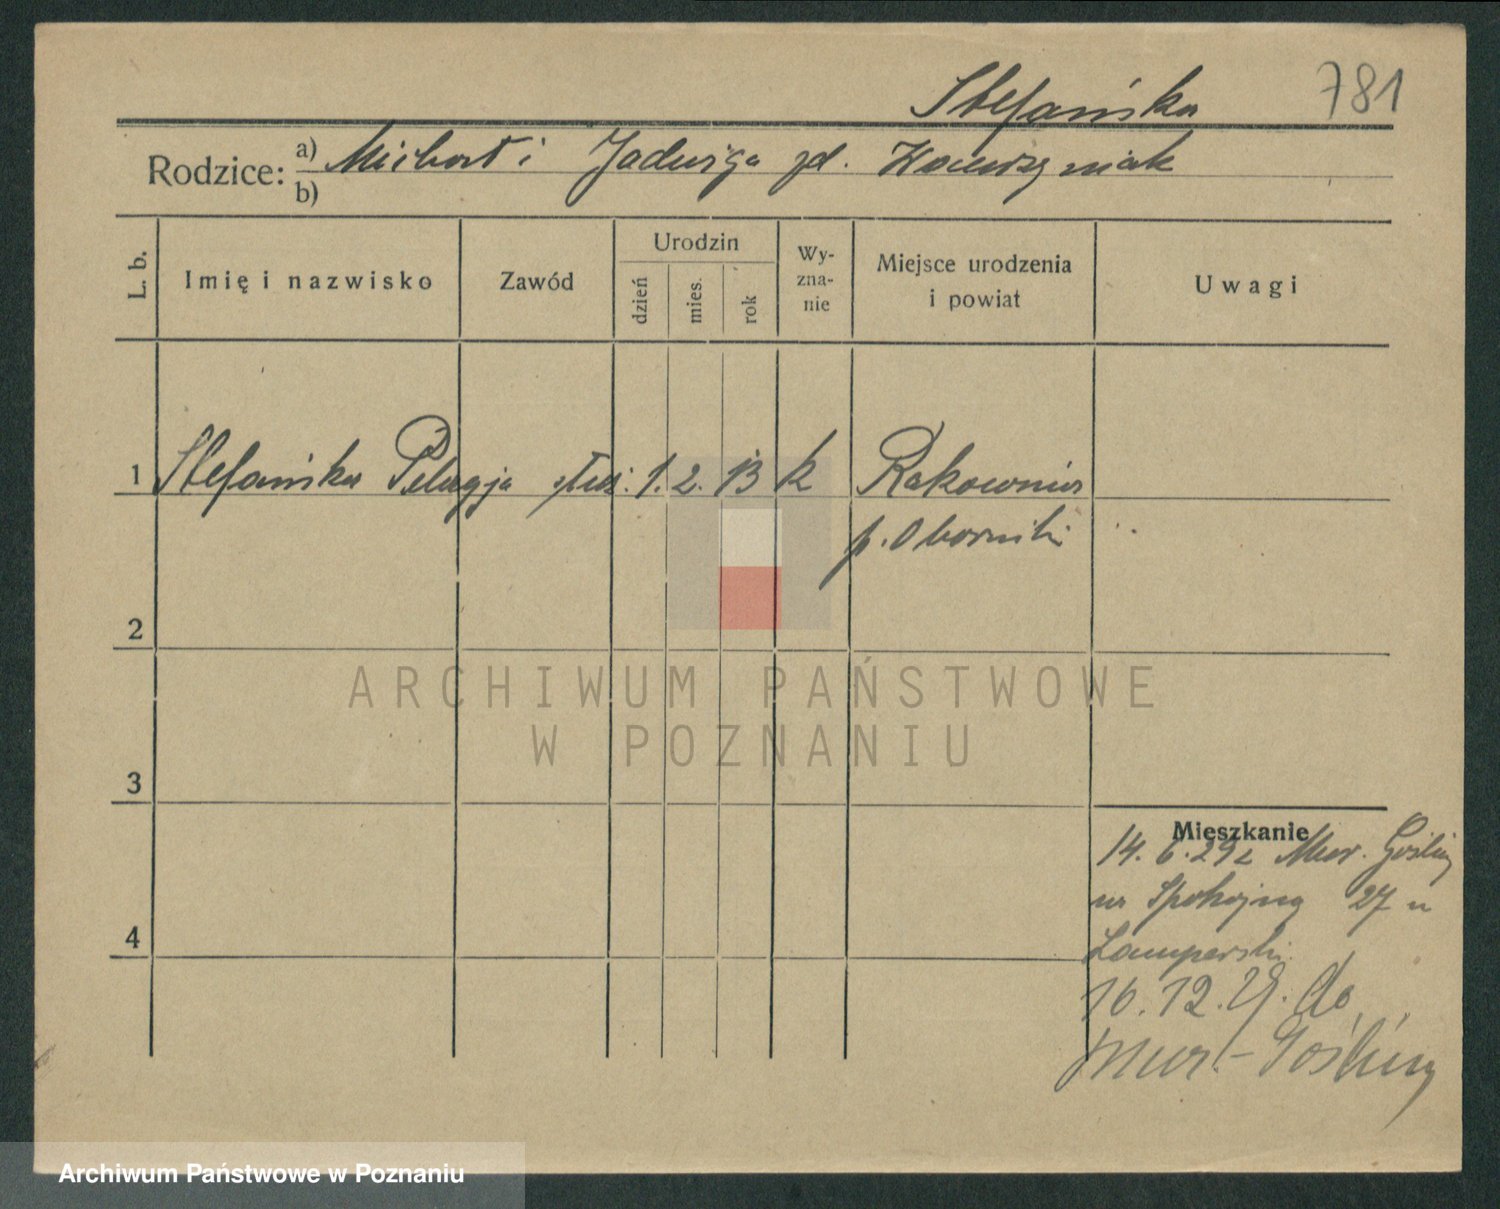 781
Stefańska
Rodzice: a) Michał i Jadwiga zd.
b)
L. b.
Imię i nazwisko
Zawód
Urodzin
dzień
mies.
rok
Wy-
zna-
nie
Miejsce urodzenia
i powiat
Uwagi
1 Stefańska Pelagja służ. 1. 2. 13 k Rakownia
p. Oborniki
2
3
4
Mieszkanie
14. 6. 29 z Mur. Gośliny
na Spokojną 27 u
Lamperski.
16. 12. 29. do
Mur.-Gośliny
ARCHIWUM PAŃSTWOWE
W POZNANIU
Archiwum Państwowe w Poznaniu